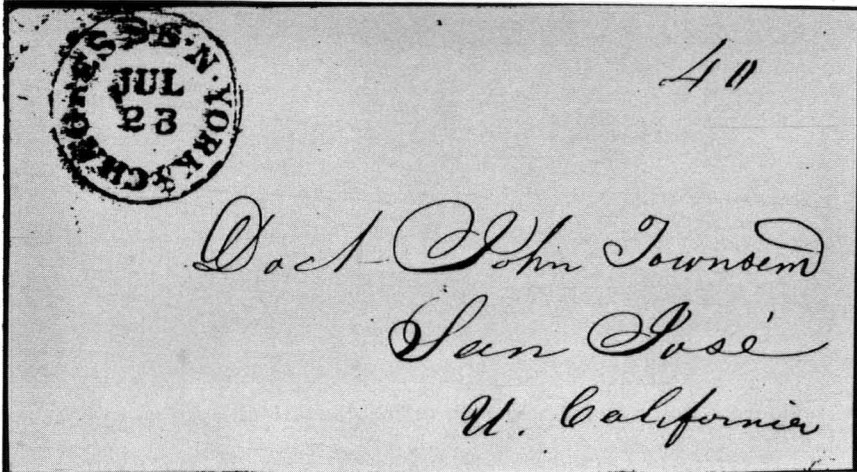 N. YORK & CHAGRES S.S.
JUL
23
40
Doct John Townsend
San José
U. California